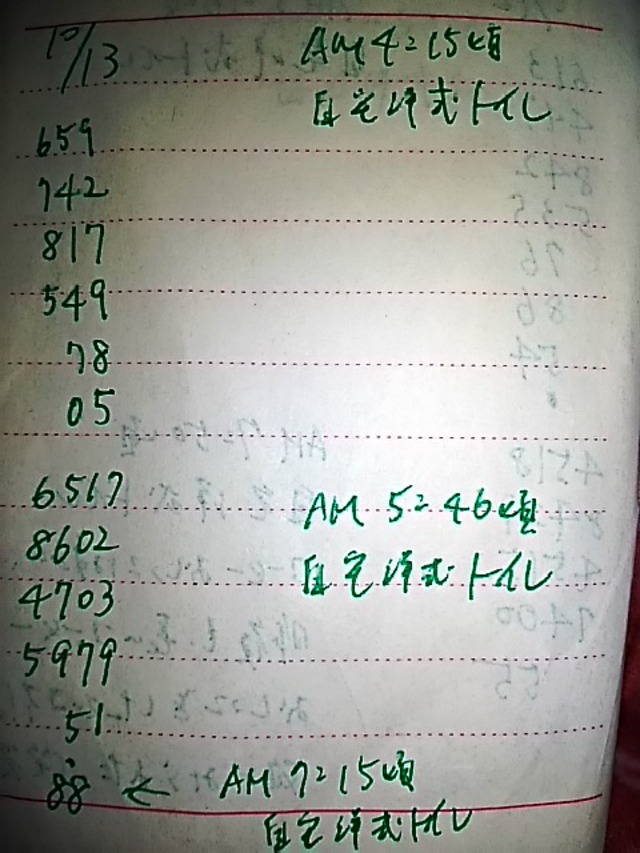 10/13 AM 4:15頃
自宅洋式トイレ
659
742
817
549
78
05
6517 AM 5:46頃
8602 自宅洋式トイレ
4703
5979
51
88 ← AM 7:15頃
自宅洋式トイレ